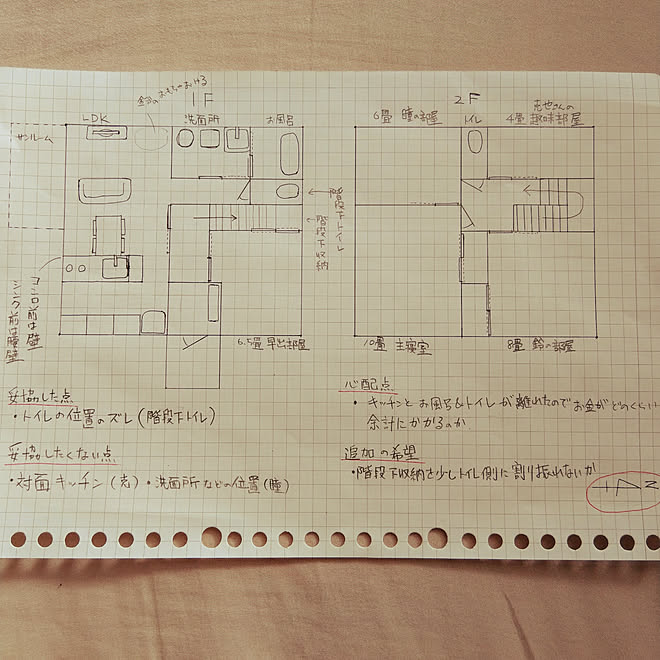 鈴のおもちゃおける
1F
LDK
洗面所
お風呂
サンルーム
階段下トイレ
階段下収納
コンロ前は壁
シンク前は腰壁
2F
6畳 瞳の部屋
トイレ
4畳 趣味部屋
10畳 主寝室
8畳 鈴の部屋
妥協した点
・トイレの位置のズレ(階段下トイレ)
妥協したくない点
・対面キッチン(克)・洗面所などの位置(瞳)
心配点
・キッチンとお風呂&トイレが離れたのでお金がどのくらい
余計にかかるのか
追加の希望
・階段下収納を少しトイレ側に割り振れないか